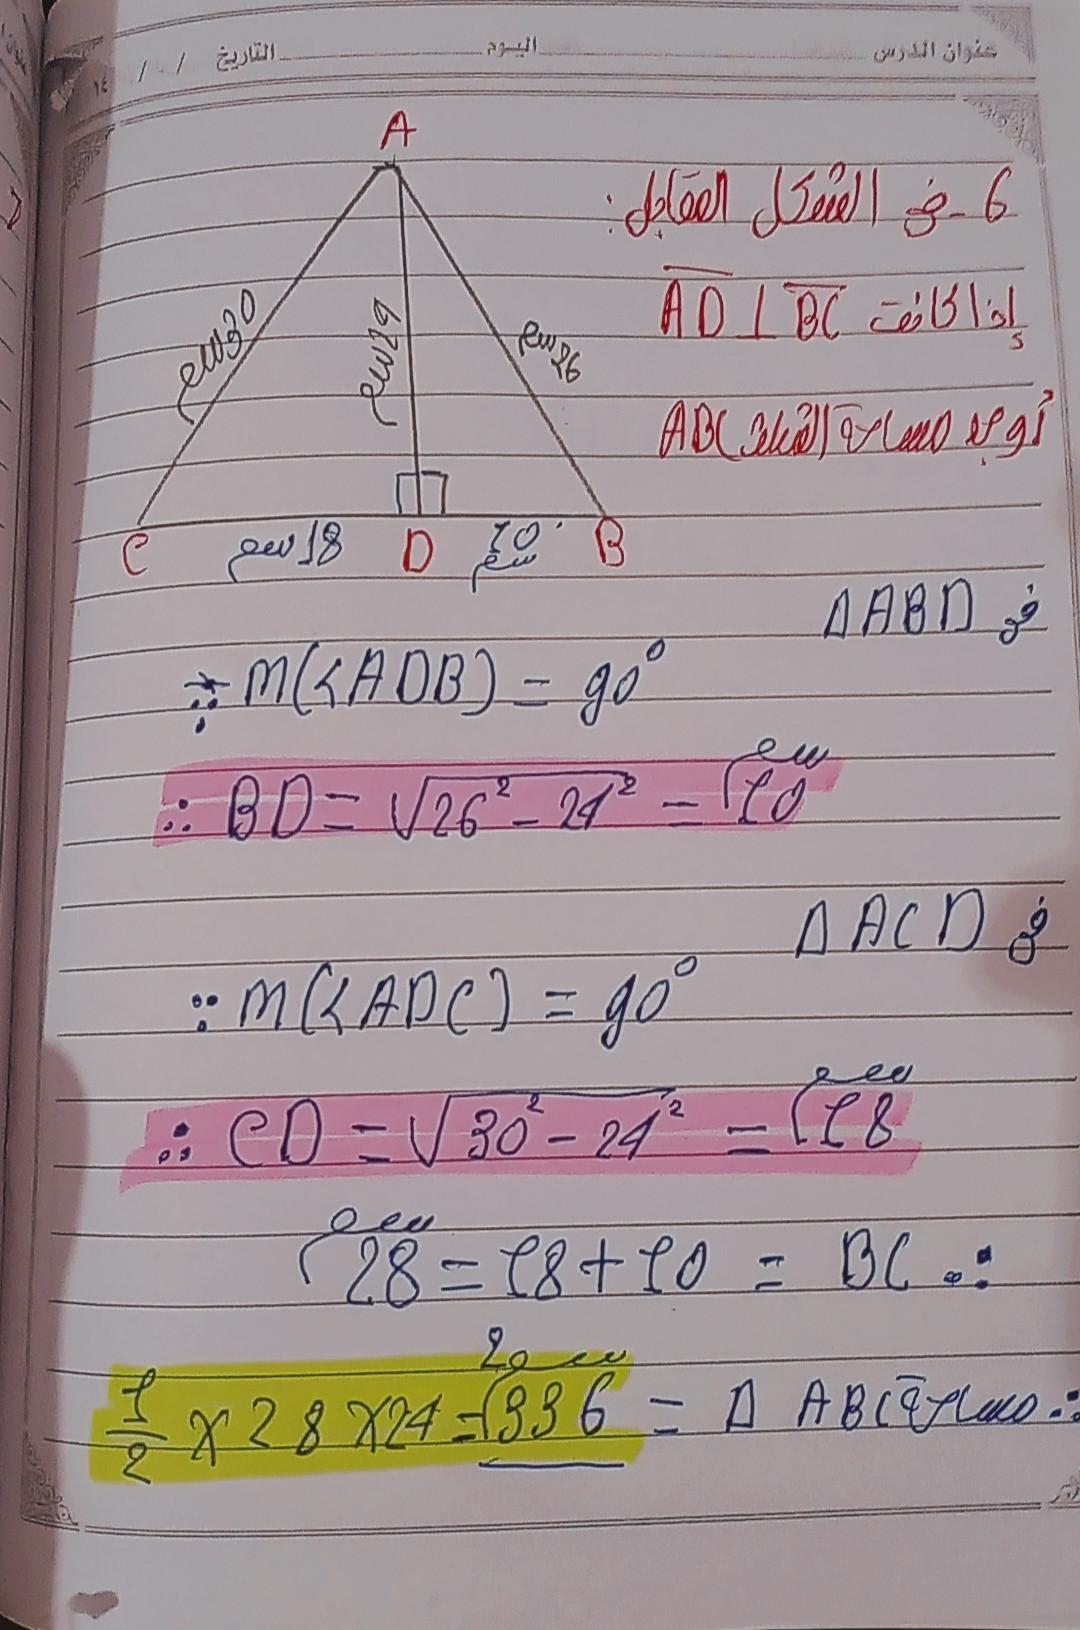 عنوان الدرس اليوم التاريخ / /
١٤
6 - في الشكل المقابل:
إذا كانت AD ⊥ BC
أوجد مساحة المثلث ABC
A
30سم
24سم
26سم
C 18سم D 10سم B
في Δ ABD
∵ m(∠ADB) = 90°
∴ BD = √26² - 24² = 10سم
في Δ ACD
∵ m(∠ADC) = 90°
∴ CD = √30² - 24² = 18سم
∴ BC = 10 + 18 = 28سم
∴ مساحة Δ ABC = 336سم² = 1/2 × 28 × 24